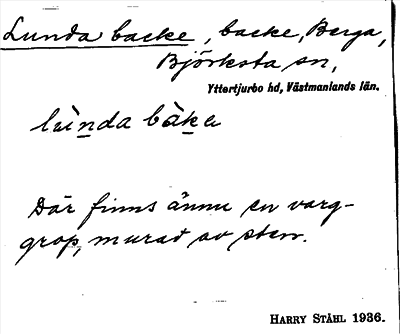 Lunda backe, backe, Berga,
Björksta sn,
Yttertjurbo hd, Västmanlands län.
lùnda bàke
Där finns ännu en varg-
grop, murad av sten.
HARRY STÅHL 1936.